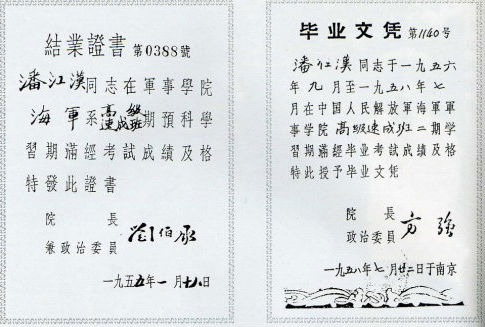 結業證書 第0388號
潘江漢同志在軍事學院
海軍系高級速成班期預科學
習期滿經考試成績及格
特發此證書
院長
兼政治委員 劉伯承
一九五五年一月十八日
毕业文凭 第1140号
潘江漢同志于一九五六
年九月至一九五八年七
月在中国人民解放軍海軍軍
事学院高級速成班二期学
習期滿經毕业考試成績及格
特此授予毕业文凭
院長
政治委員 方強
一九五八年七月廿二日于南京